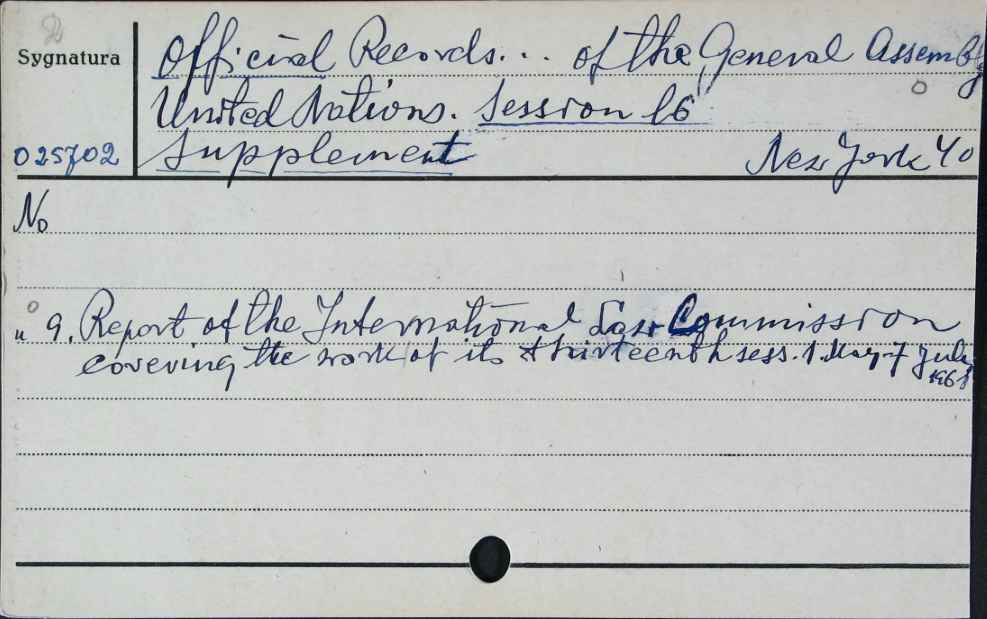 Sygnatura
Official Records... of the General Assembly
United Nations. Session 16
025702
Supplement New York 4o
No
" 9. Report of the International Law Commission
covering the work of its thirteenth sess. 1 May-7 July
1961